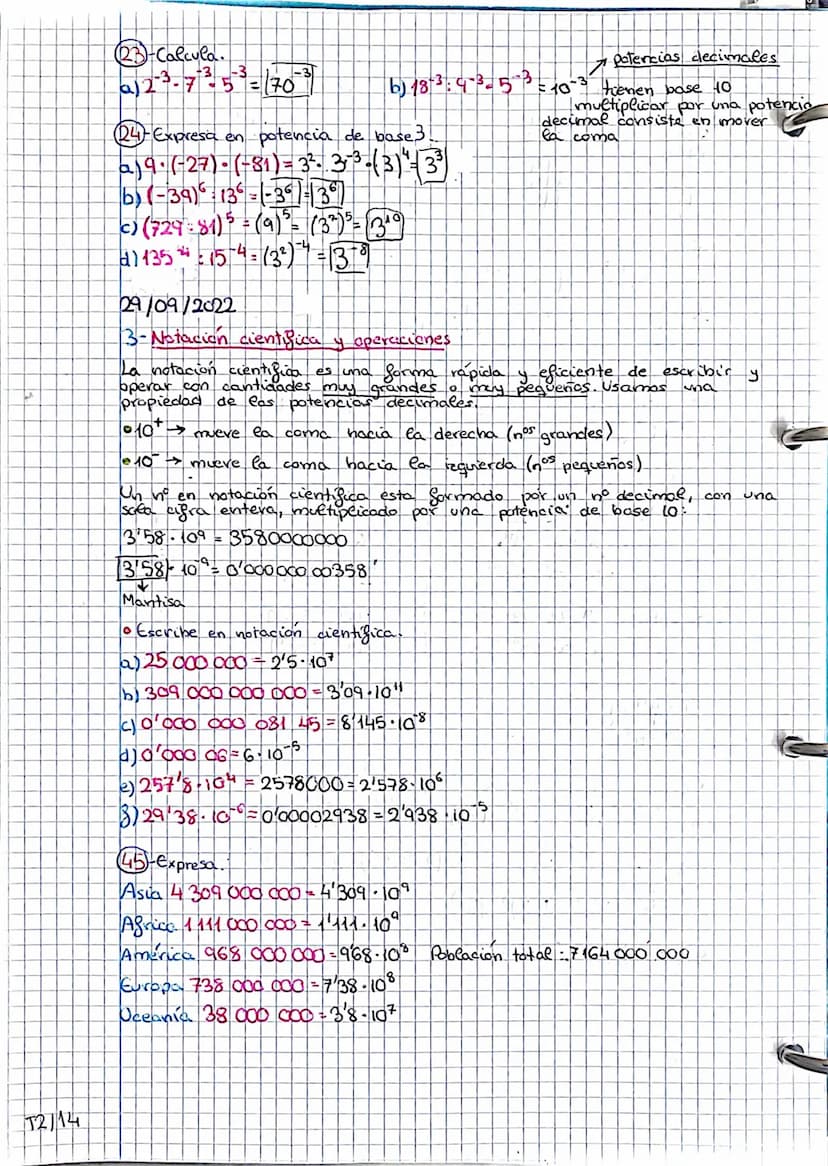 23-Calcula.
a) 2⁻³ · 7⁻³ · 5⁻³ = 70⁻³
b) 18⁻³ : 9⁻³ · 5⁻³ = 10⁻³ → potencias decimales
tienen base 10
multiplicar por una potencia
decimal consiste en mover
la coma
24-Expresa en potencia de base 3.
a) 9 · (-27) · (-81) = 3² · 3⁻³ · (3)⁴ = 3³
b) (-39)⁶ : 13⁶ = (-3⁶) = 3⁶
c) (729 : 81)⁵ = (9)⁵ = (3²)⁵ = 3¹⁰
d) 135⁻⁴ : 15⁻⁴ = (3²)⁻⁴ = 3⁻⁸
29/09/2022
3-Notación científica y operaciones
La notación científica es una forma rápida y eficiente de escribir y
operar con cantidades muy grandes o muy pequeños. Usamos una
propiedad de las potencias decimales.
• 10⁺ → mueve la coma hacia la derecha (nᵒˢ grandes)
• 10⁻ → mueve la coma hacia la izquierda (nᵒˢ pequeños)
Un nº en notación científica esta formado por un nº decimal, con una
sola cifra entera, multiplicado por una potencia de base 10:
3'58 · 10⁹ = 3580000000
3'58 · 10⁻⁹ = 0'000000 00358
↓
Mantisa
• Escribe en notación científica.
a) 25 000 000 = 2'5 · 10⁷
b) 309 000 000 000 = 3'09 · 10¹¹
c) 0'000 000 081 45 = 8'145 · 10⁻⁸
d) 0'000 06 = 6 · 10⁻⁵
e) 257'8 · 10⁴ = 2578000 = 2'578 · 10⁶
f) 29'38 · 10⁻⁶ = 0'00002938 = 2'938 · 10⁻⁵
45-Expresa.
Asia 4 309 000 000 = 4'309 · 10⁹
Africa 1 111 000 000 = 1'111 · 10⁹
América 968 000 000 = 9'68 · 10⁸ Población total = 7164000 000
Europa 738 000 000 = 7'38 · 10⁸
Oceanía 38 000 000 = 3'8 · 10⁷
T2/14